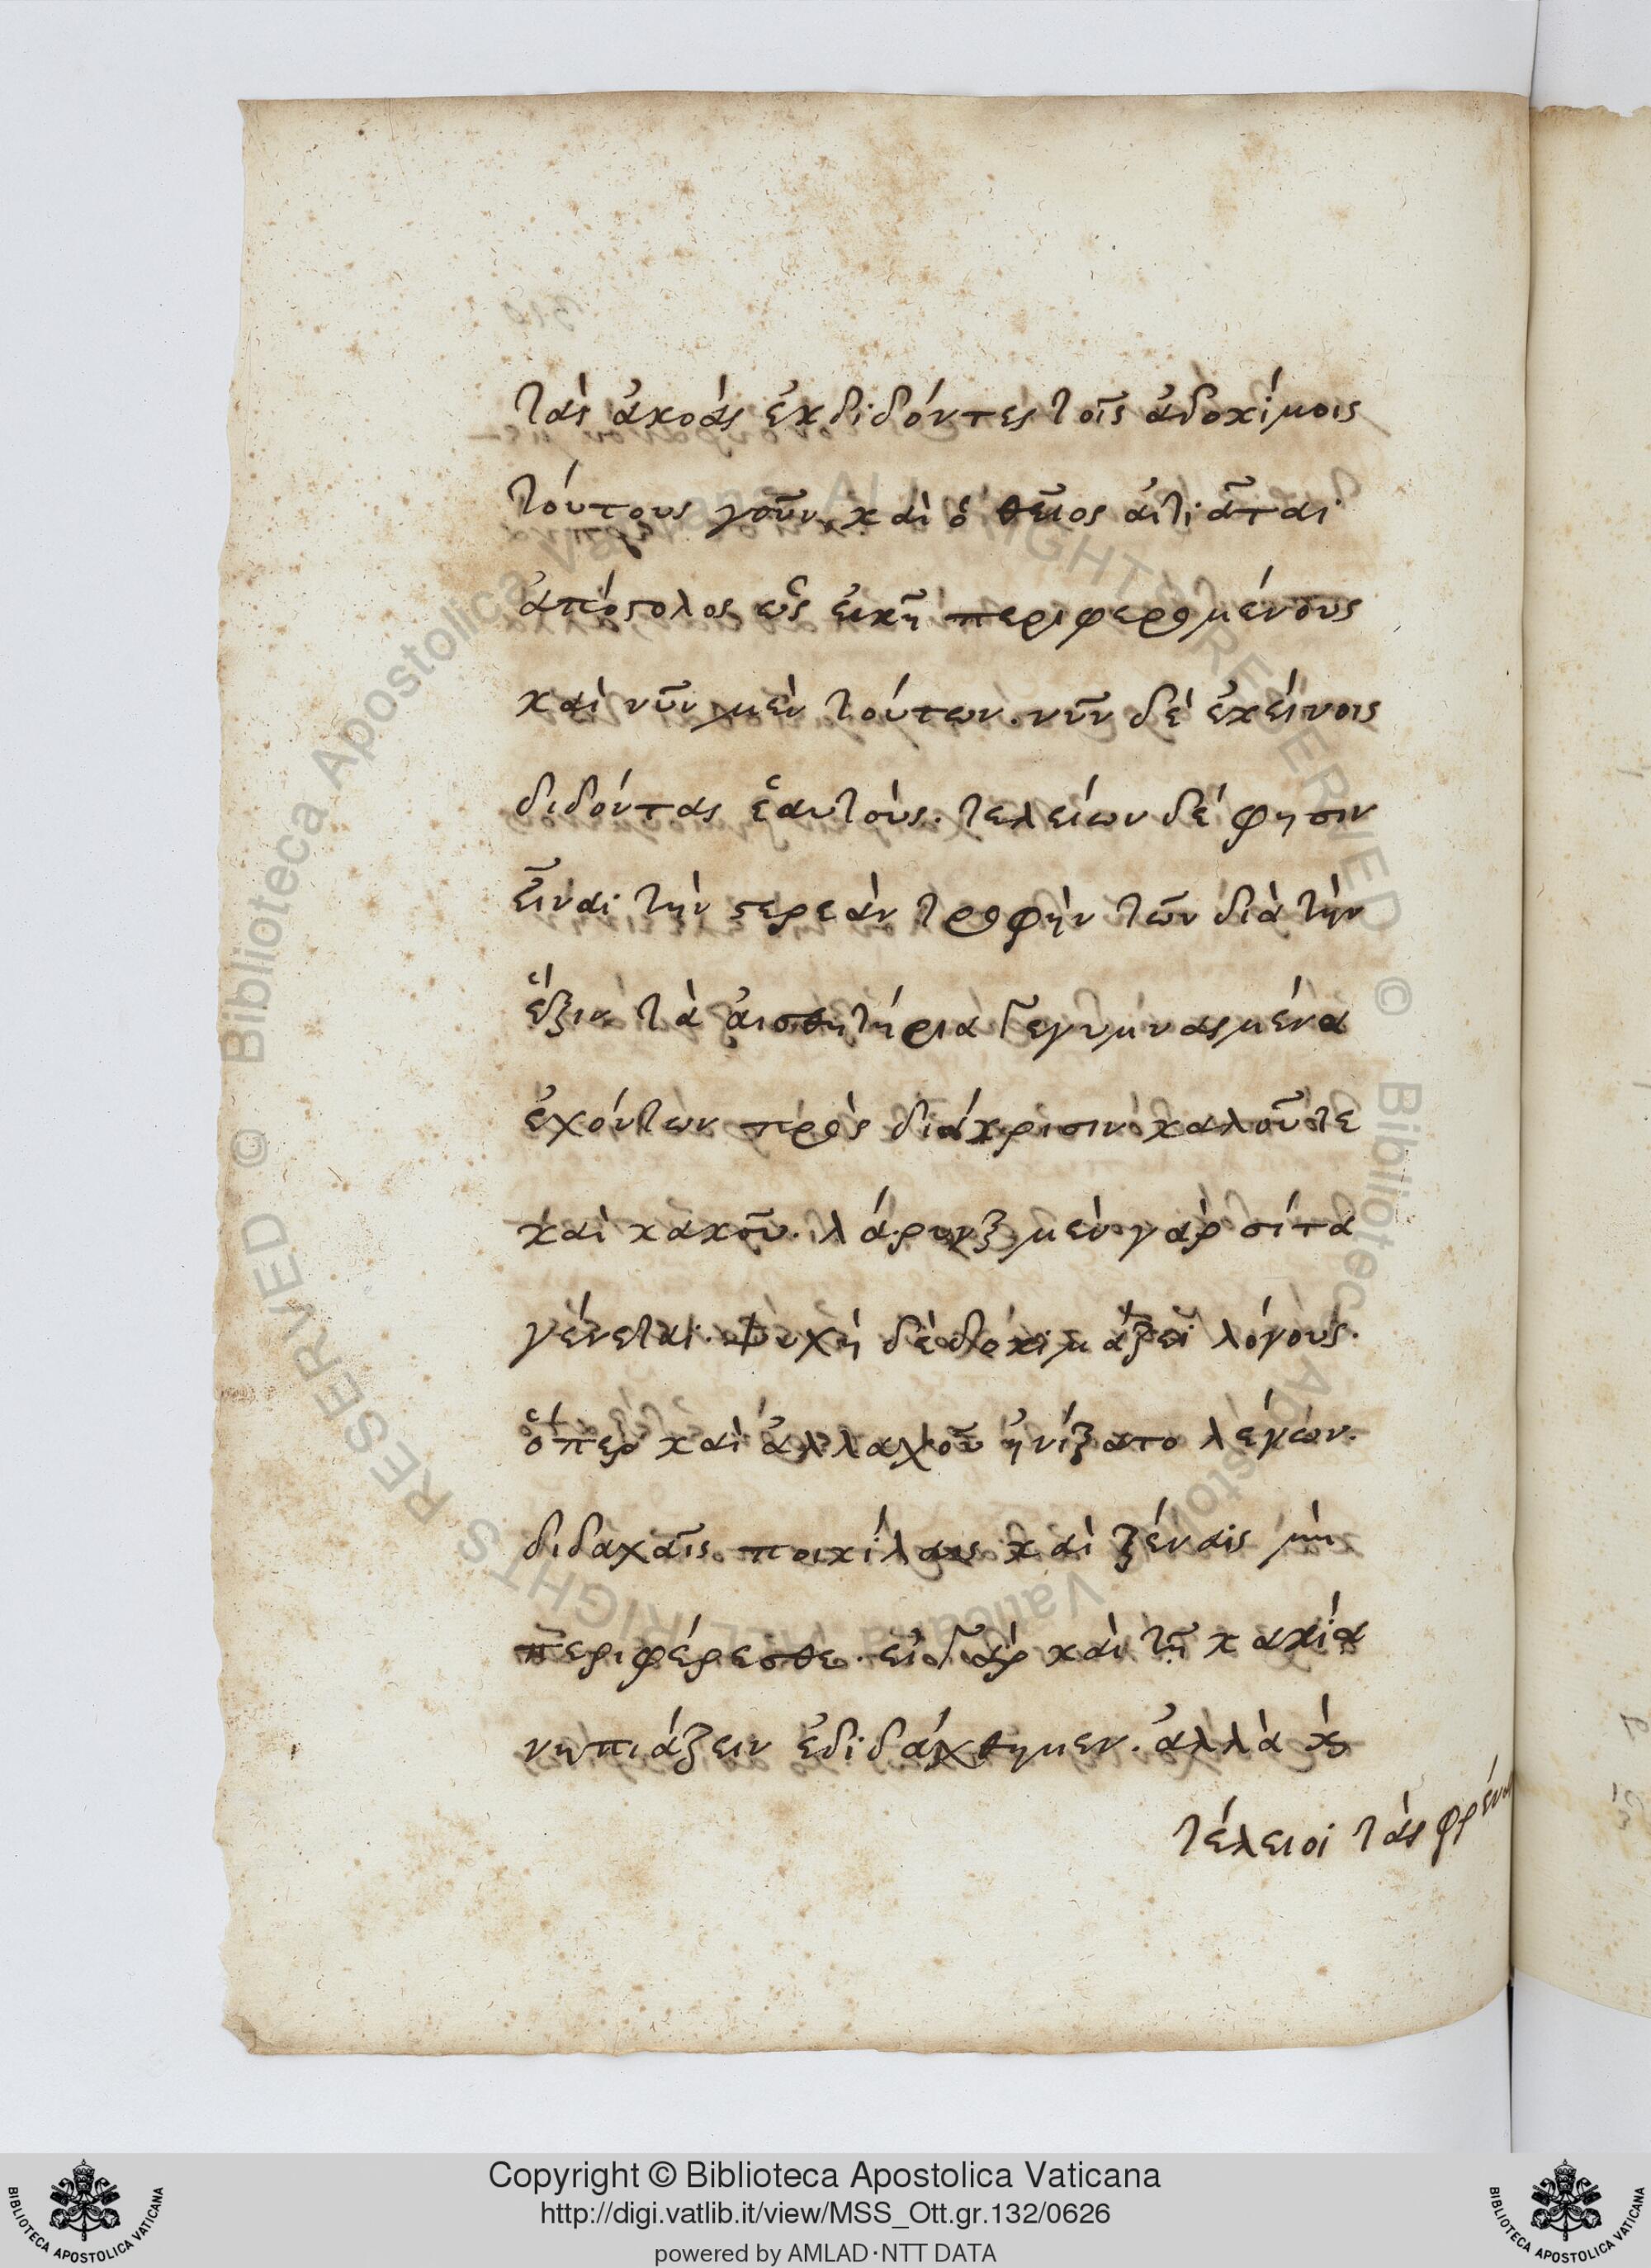 τὰς ἀκοὰς ἐκδιδόντες τοῖς ἀδοκίμοις
τούτους γοῦν καὶ ὁ θεῖος αἰτιᾶται
ἀπόστολος ὡς εἰκῆ περιφερομένους
καὶ νῦν μὲν τούτων. νῦν δὲ ἐκείνοις
διδόντας ἑαυτούς. τελείων δέ φησιν
εἶναι τὴν στερεὰν τροφὴν τῶν διὰ τὴν
ἕξιν τὰ αἰσθητήρια γεγυμνασμένα
ἐχόντων πρὸς διάκρισιν καλοῦ τε
καὶ κακοῦ. λάρυγξ μὲν γὰρ σίτα
γεύεται. ψυχὴ δὲ δοκιμάζει λόγους.
ὅπερ καὶ ἀλλαχοῦ ἠνίξατο λέγων.
διδαχαῖς ποικίλαις καὶ ξέναις μὴ
περιφέρεσθε. εἰ γὰρ καὶ τῇ κακίᾳ
νηπιάζειν ἐδιδάχθημεν. ἀλλὰ καὶ
τέλειοι τὰς φρένας
Copyright © Biblioteca Apostolica Vaticana
http://digi.vatlib.it/view/MSS_Ott.gr.132/0626
powered by AMLAD·NTT DATA
BIBLIOTECA APOSTOLICA VATICANA
BIBLIOTECA APOSTOLICA VATICANA
© Biblioteca Apostolica Vaticana ALL RIGHTS RESERVED © Biblioteca Apostolica Vaticana ALL RIGHTS RESERVED